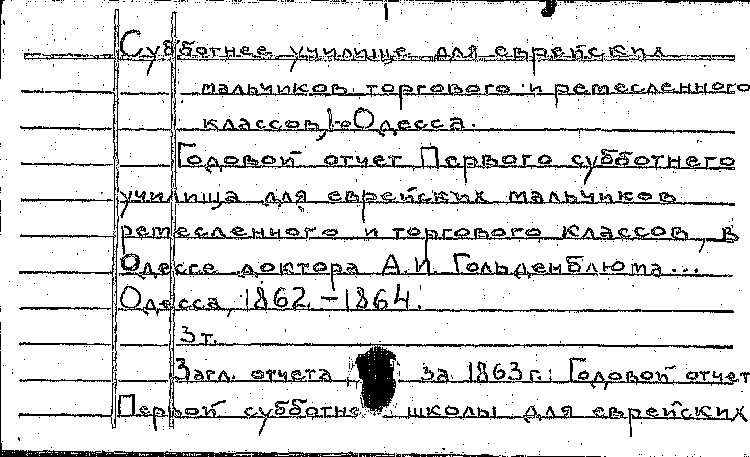 Субботнее училище для еврейских
мальчиков торгового и ремесленного
классов, 1-е Одесса.
Годовой отчет Первого субботнего
училища для еврейских мальчиков
ремесленного и торгового классов, в
Одессе доктора А.И. Гольденблюма...
Одесса, 1862.-1864.
3 т.
Загл. отчета за 1863 г.: Годовой отчет
Первой субботне школы для еврейских